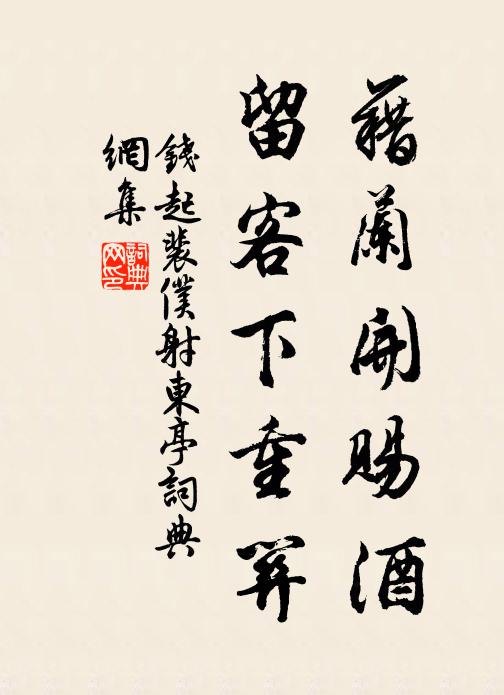 藉蘭開賜酒
留客下重關
錢起裴僕射東亭詞典
網集
詞典
网印